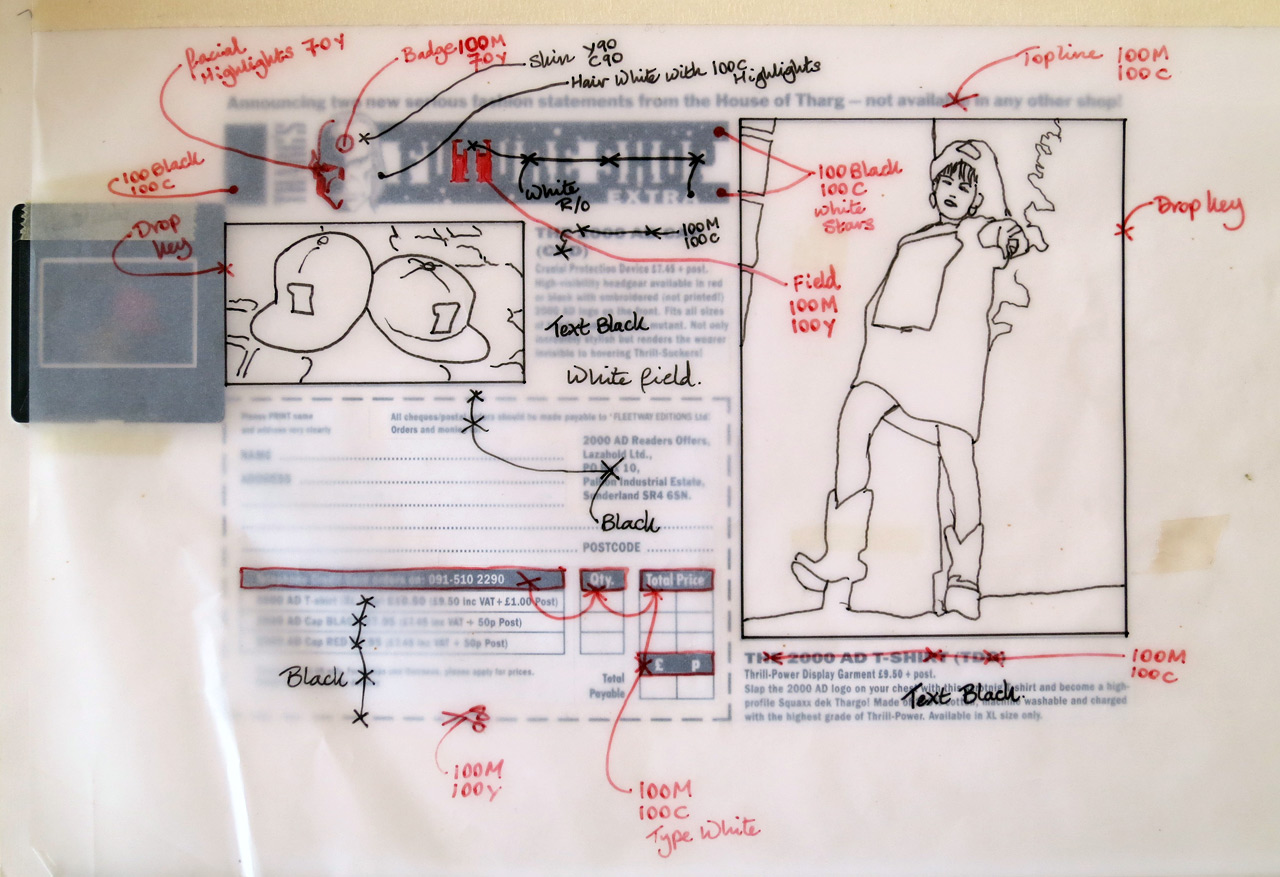 Facial
Highlights 70Y
Badge 100M
70Y
Skin Y90
C90
Hair White with 100C
Highlights
Topline 100M
100C
Announcing two new serious fashion statements from the House of Tharg — not available in any other shop!
100 Black
100C
White
R/O
EXTRA
100 Black
100C
White
Stars
Drop Key
Drop
Key
100M
100C
THE 2000 AD
Crucial Protection Device £7.45 + post.
High-visibility headgear available in red
or black with embroidered (not printed!)
2000 AD logo on the front. Fits all sizes
of mutant. Not only
stylish but renders the wearer
invisible to hovering Thrill-Suckers!
Text Black
White field.
Field
100M
100Y
Please PRINT name
and address very clearly
All cheques/postal orders should be made payable to 'FLEETWAY EDITIONS Ltd'
Orders and
2000 AD Readers Offers,
Lazahold Ltd.,
PO Box 10,
Pallion Industrial Estate,
Sunderland SR4 6SN.
NAME
ADDRESS
Black
POSTCODE
orders on: 091-510 2290
Qty.
Total Price
2000 AD T-shirt (£9.50 inc VAT + £1.00 Post)
2000 AD Cap BLACK inc VAT + 50p Post)
2000 AD Cap RED inc VAT + 50p Post)
£ p
please apply for prices.
Total
Payable
Black
THE 2000 AD T-SHIRT
100M
100C
Thrill-Power Display Garment £9.50 + post.
Slap the 2000 AD logo on your chest with this T-shirt and become a high-
profile Squaxx dek Thargo! Made machine washable and charged
with the highest grade of Thrill-Power. Available in XL size only.
Text Black.
100M
100Y
100M
100C
Type White